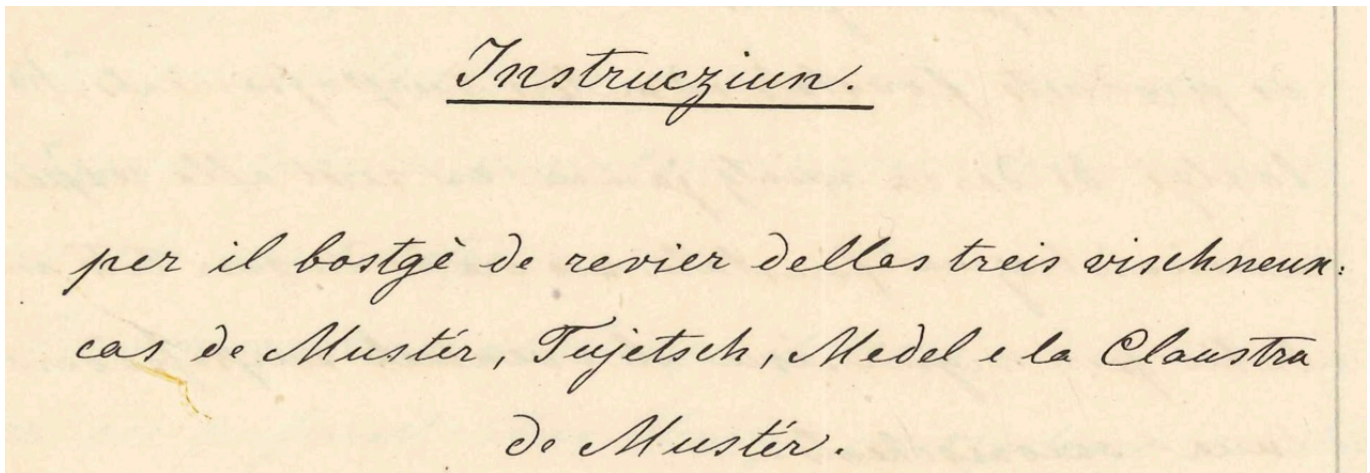 Instrucziun.
per il bostgè de revier dellas treis vischneun:
cas de Mustér, Tujetsch, Medel e la Claustra
de Mustér.